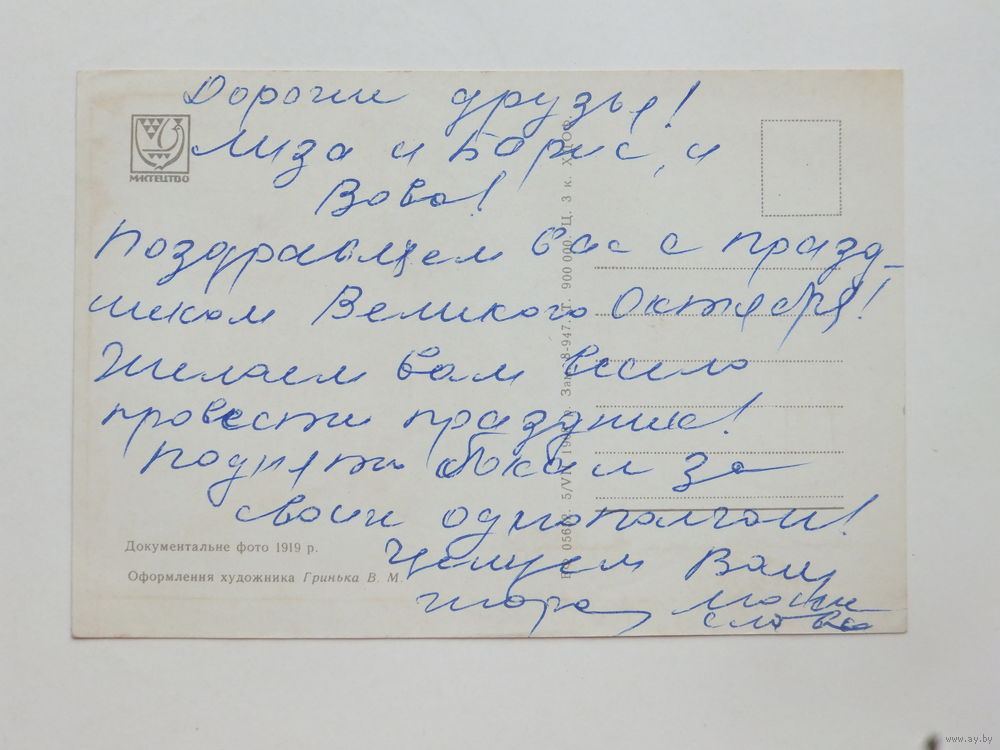 Дорогие друзья!
Лиза и Борис, и
Вова!
Поздравляем вас с празд-
ником Великого Октября!
Желаем вам весело
провести праздник!
Поднять бокал за
своих однополчан!
Целуем Вас,
МИСТЕЦТВО
Документальне фото 1919 р.
Оформлення художника Гринька В. М.
8-947. Т. 900 000. Ц. 3 к. ХДОФ.
www.ay.by